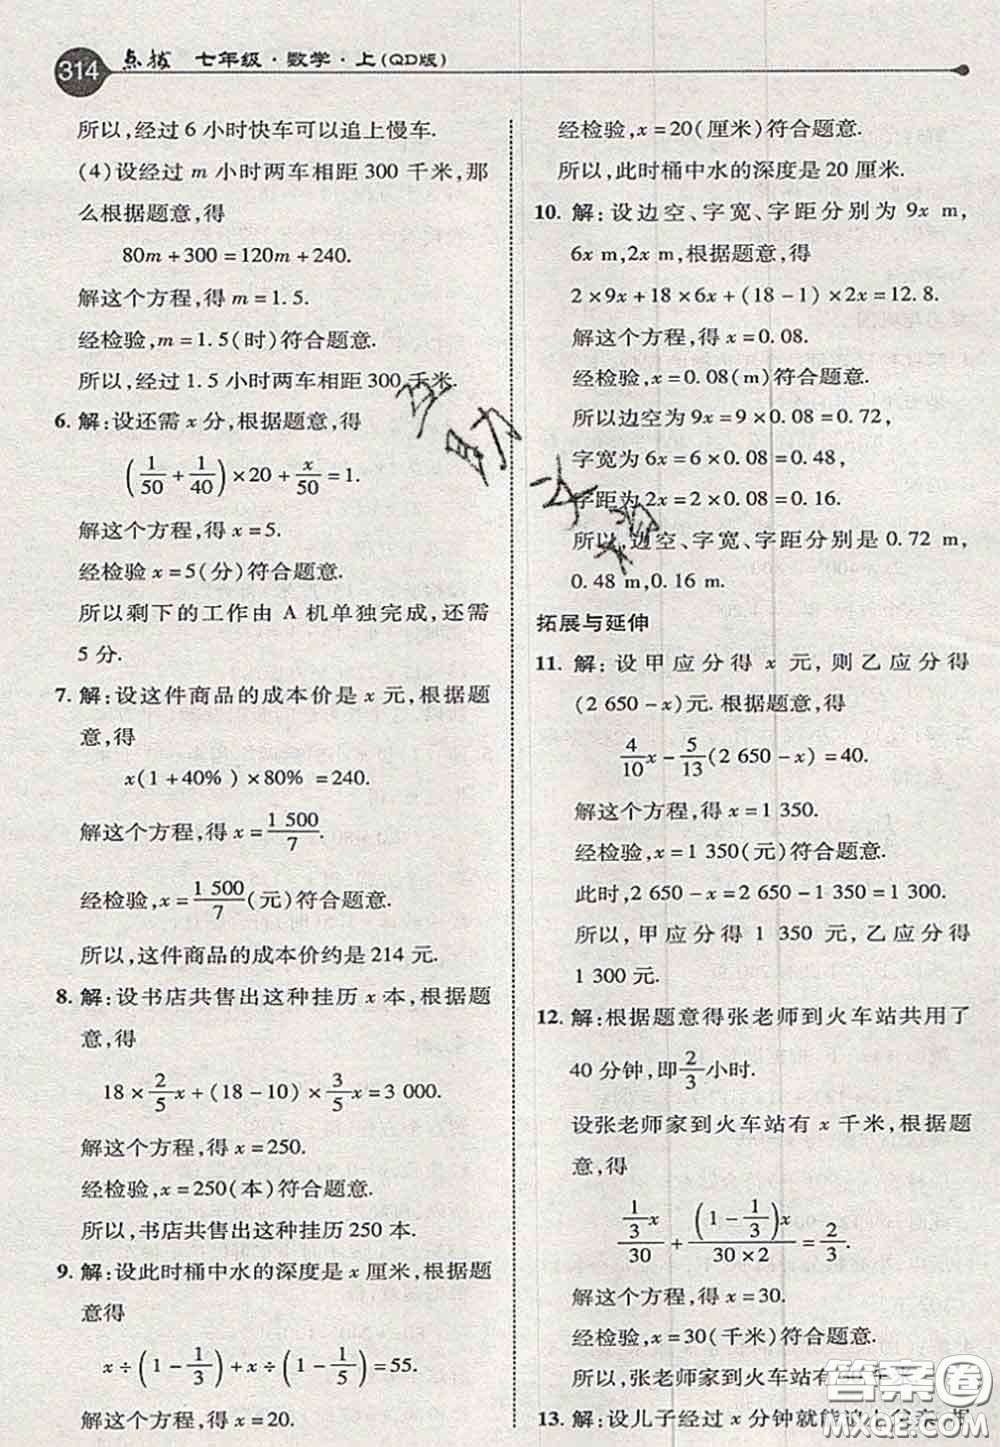 314 点拨 七年级·数学·上(QD版)
所以,经过 6 小时快车可以追上慢车.
(4)设经过 m 小时两车相距 300 千米,那
么根据题意,得
80m+300=120m+240.
解这个方程,得 m=1.5.
经检验,m=1.5(时)符合题意.
所以,经过 1.5 小时两车相距 300 千米.
6. 解:设还需 x 分,根据题意,得
(1/50+1/40)×20+x/50=1.
解这个方程,得 x=5.
经检验 x=5(分)符合题意.
所以剩下的工作由 A 机单独完成,还需
5 分.
7. 解:设这件商品的成本价是 x 元,根据题
意,得
x(1+40%)×80%=240.
解这个方程,得 x=1 500/7.
经检验,x=1 500/7(元)符合题意.
所以,这件商品的成本价约是 214 元.
8. 解:设书店共售出这种挂历 x 本,根据题
意,得
18×2/5x+(18-10)×3/5x=3 000.
解这个方程,得 x=250.
经检验,x=250(本)符合题意.
所以,书店共售出这种挂历 250 本.
9. 解:设此时桶中水的深度是 x 厘米,根据题
意得
x÷(1-1/3)+x÷(1-1/5)=55.
解这个方程,得 x=20.
经检验,x=20(厘米)符合题意.
所以,此时桶中水的深度是 20 厘米.
10. 解:设边空、字宽、字距分别为 9x m,
6x m,2x m,根据题意,得
2×9x+18×6x+(18-1)×2x=12.8.
解这个方程,得 x=0.08.
经检验,x=0.08(m)符合题意.
所以边空为 9x=9×0.08=0.72,
字宽为 6x=6×0.08=0.48,
字距为 2x=2×0.08=0.16.
所以,边空、字宽、字距分别是 0.72 m,
0.48 m,0.16 m.
拓展与延伸
11. 解:设甲应分得 x 元,则乙应分得
(2 650-x)元.根据题意,得
4/10x-5/13(2 650-x)=40.
解这个方程,得 x=1 350.
经检验,x=1 350(元)符合题意.
此时,2 650-x=2 650-1 350=1 300.
所以,甲应分得 1 350 元,乙应分得
1 300 元.
12. 解:根据题意得张老师到火车站共用了
40 分钟,即2/3小时.
设张老师家到火车站有 x 千米,根据题
意,得
1/3x/30+(1-1/3)x/30×2=2/3.
解这个方程,得 x=30.
经检验,x=30(千米)符合题意.
所以,张老师家到火车站有30千米.
13. 解:设儿子经过 x 分钟就能追上父亲,根
答案圈
MXQE.COM